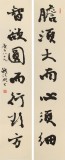 膽須大而心須細
智欲圓而行欲方